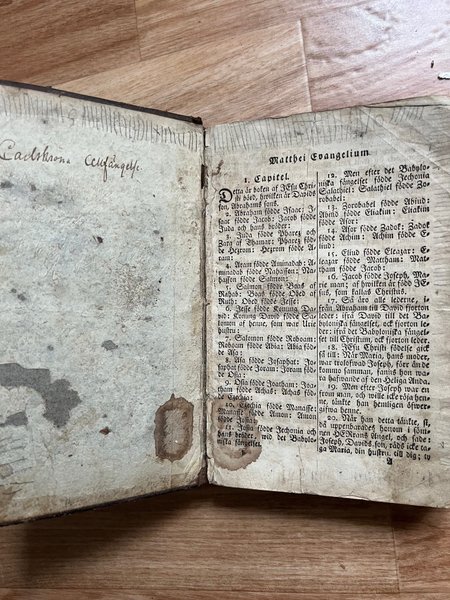 Ladskrona Cellfängelse
Matthei Evangelium.
1. Capitel.
Detta är boken af JEsu Chri-
sti börd, hwilken är Davids
son, Abrahams sons.
2. Abraham födde Isaac: I-
saac födde Jacob: Jacob födde
Juda och hans bröder:
3. Juda födde Pharez och
Zara af Thamar: Pharez föd-
de Hezrom: Hezrom födde A-
ram:
4. Aram födde Aminadab: A-
minadab födde Nahasson: Na-
hasson födde Salmon:
5. Salmon födde Boas af
Rahab: Boas födde Obed af
Ruth: Obed födde Jesse:
6. Jesse födde Konung Da-
vid: Konung David födde Sa-
lomon af henne, som war Urie
hustru:
7. Salomon födde Roboam:
Roboam födde Abia: Abia föd-
de Asa:
8. Asa födde Josaphat: Jo-
saphat födde Joram: Joram föd-
de Osia:
9. Osia födde Joatham: Joa-
tham födde Achas: Achas föd-
de Ezechia:
10. Ezechia födde Manasse:
Manasse födde Amon: Amon
födde Josia:
11. Josia födde Jechonia och
hans bröder, wid det Babylo-
niska fängelset.
12. Men efter det Babylo-
niska fängelset födde Jechonia
Salathiel: Salathiel födde Zo-
robabel:
13. Zorobabel födde Abiud:
Abiud födde Eliakim: Eliakim
födde Asor:
14. Asor födde Zadok: Zadok
födde Achim: Achim födde E-
liud:
15. Eliud födde Eleazar: E-
leazar födde Matthan: Mat-
than födde Jacob:
16. Jacob födde Joseph, Ma-
rie man; af hwilken är född JE-
sus, som kallas Christus.
17. Så äro alle lederne, i-
från Abraham till David fjorton
leder: ifrå David till det Ba-
byloniska fängelset, ock fjorton le-
der: ifrå det Babyloniska fängel-
set till Christum, ock fjorton leder.
18. JEsu Christi födelse gick
så till: När Maria, hans moder,
war trolofwad Joseph, förr än de
komme samman, fanns hon wa-
ra hafwande af den Heliga Anda.
19. Men efter Joseph war en
from man, och wille icke röja hen-
ne, tänkte han hemligen öfwer-
gifwa henne.
20. När han detta tänkte, si,
då uppenbarades honom i söm-
nen HERrans Ängel, och sade:
Joseph, Davids son, räds icke ta-
ga Maria, din hustru till dig; ty
A